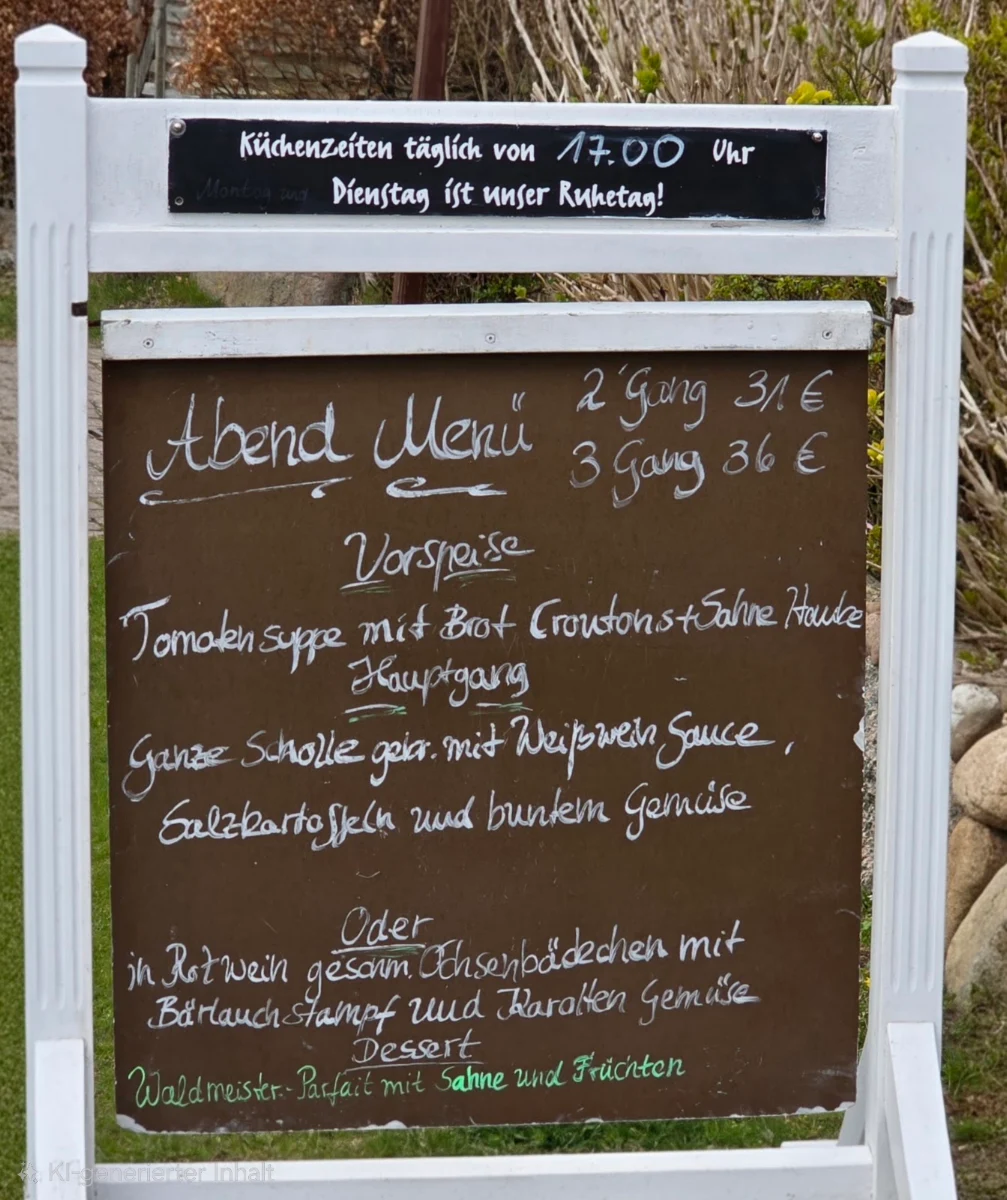 Küchenzeiten täglich von 17.00 Uhr
Montag und
Dienstag ist unser Ruhetag!
Abend Menü
2 Gang 31 €
3 Gang 36 €
Vorspeise
Tomatensuppe mit Brot Croutons + Sahne Haube
Hauptgang
Ganze Scholle gebr. mit Weißwein Sauce,
Salzkartoffeln und buntem Gemüse
Oder
in Rotwein geschm. Ochsenbäckchen mit
Bärlauchstampf und Karotten Gemüse
Dessert
Waldmeister-Parfait mit Sahne und Früchten
KI-generierter Inhalt